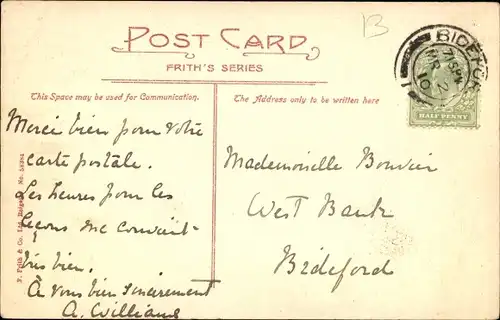 B
POST CARD
FRITH'S SERIES
This Space may be used for Communication.
The Address only to be written here
Merci bien pour votre
carte postale.
Les heures pour les
leçons me convient
très bien.
À vous bien sincèrement
A. Williams
Mademoiselle Bouvier
West Bank
Bideford
BIDEFORD
7.15 PM
MR 2
10
HALF PENNY
F. Frith & Co. Ltd. Reigate. No.